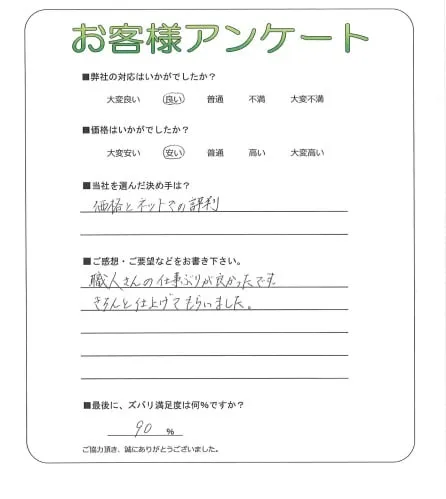 お客様アンケート
■弊社の対応はいかがでしたか？
大変良い 良い 普通 不満 大変不満
■価格はいかがでしたか？
大変安い 安い 普通 高い 大変高い
■当社を選んだ決め手は？
価格とネットでの評判
■ご感想・ご要望などをお書き下さい。
職人さんの仕事ぶりが良かったです。
きちんと仕上げてもらいました。
■最後に、ズバリ満足度は何%ですか？
90 %
ご協力頂き、誠にありがとうございました。